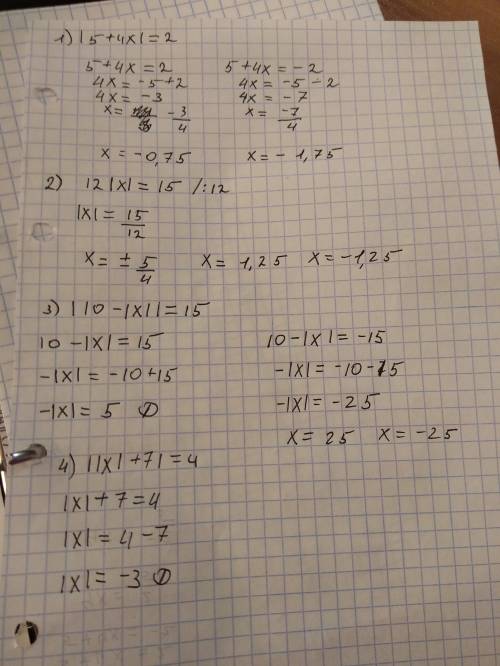 1) |5+4x|=2
5+4x=2 5+4x=-2
4x=-5+2 4x=-5-2
4x=-3 4x=-7
x= -3/4 x= -7/4
x=-0,75 x=-1,75
2) 12|x|=15 /:12
|x|= 15/12
x=± 5/4 x=1,25 x=-1,25
3) |10-|x||=15
10-|x|=15 10-|x|=-15
-|x|=-10+15 -|x|=-10-15
-|x|=5 ∅ -|x|=-25
x=25 x=-25
4) ||x|+7|=4
|x|+7=4
|x|=4-7
|x|=-3 ∅